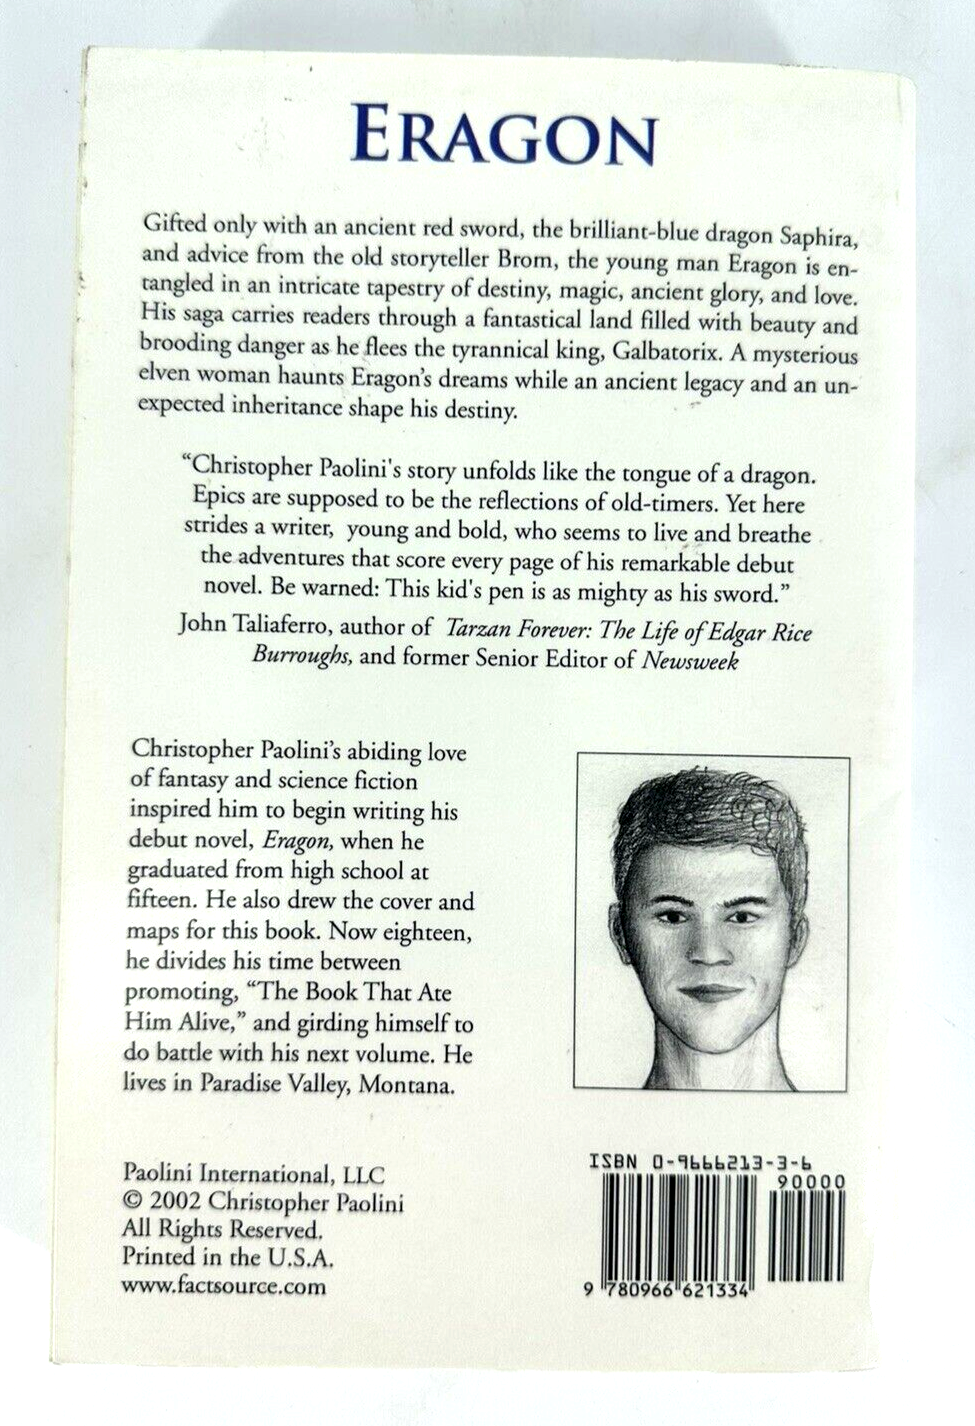 ERAGON
Gifted only with an ancient red sword, the brilliant-blue dragon Saphira,
and advice from the old storyteller Brom, the young man Eragon is en-
tangled in an intricate tapestry of destiny, magic, ancient glory, and love.
His saga carries readers through a fantastical land filled with beauty and
brooding danger as he flees the tyrannical king, Galbatorix. A mysterious
elven woman haunts Eragon's dreams while an ancient legacy and an un-
expected inheritance shape his destiny.
“Christopher Paolini's story unfolds like the tongue of a dragon.
Epics are supposed to be the reflections of old-timers. Yet here
strides a writer, young and bold, who seems to live and breathe
the adventures that score every page of his remarkable debut
novel. Be warned: This kid's pen is as mighty as his sword.”
John Taliaferro, author of Tarzan Forever: The Life of Edgar Rice
Burroughs, and former Senior Editor of Newsweek
Christopher Paolini’s abiding love
of fantasy and science fiction
inspired him to begin writing his
debut novel, Eragon, when he
graduated from high school at
fifteen. He also drew the cover and
maps for this book. Now eighteen,
he divides his time between
promoting, “The Book That Ate
Him Alive,” and girding himself to
do battle with his next volume. He
lives in Paradise Valley, Montana.
Paolini International, LLC
© 2002 Christopher Paolini
All Rights Reserved.
Printed in the U.S.A.
www.factsource.com
ISBN 0-9666213-3-6
90000
9 780966 621334